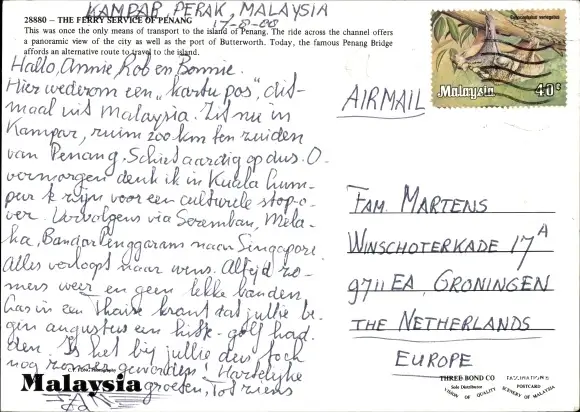 KAMPAR, PERAK, MALAYSIA
17-8-88
28880 – THE FERRY SERVICE OF PENANG
This was once the only means of transport to the island of Penang. The ride across the channel offers
a panoramic view of the city as well as the port of Butterworth. Today, the famous Penang Bridge
affords an alternative route to travel to the island.
Hallo, Annie Rob en Bonnie.
Hier wederom een „kartu pos", dit-
maal uit Malaysia. Zit nu in
Kampar, ruim 200 km ten zuiden
van Penang. Schiet aardig op dus. O-
vermorgen denk ik in Kuala Lum-
pur te zijn voor een culturele stop-o-
ver. Vervolgens via Seremban, Mela-
ka, Bandar Penggaram naar Singapore.
Alles verloopt naar wens. Altijd zo-
mers weer en geen lekke banden.
Las in een Thaise krant dat jullie be-
gin augustus een hitte-golf had-
den. Is het bij jullie dus toch
nog zomer geworden! Hartelijke
groeten, Tot ziens
Malaysia
Malaysia
40¢
AIRMAIL
FAM. MARTENS
WINSCHOTERKADE 17A
9711 EA, GRONINGEN
THE NETHERLANDS
EUROPE
THREE BOND CO
Sole Distributor
FASCINATING
VISION OF QUALITY
SCENERY OF MALAYSIA